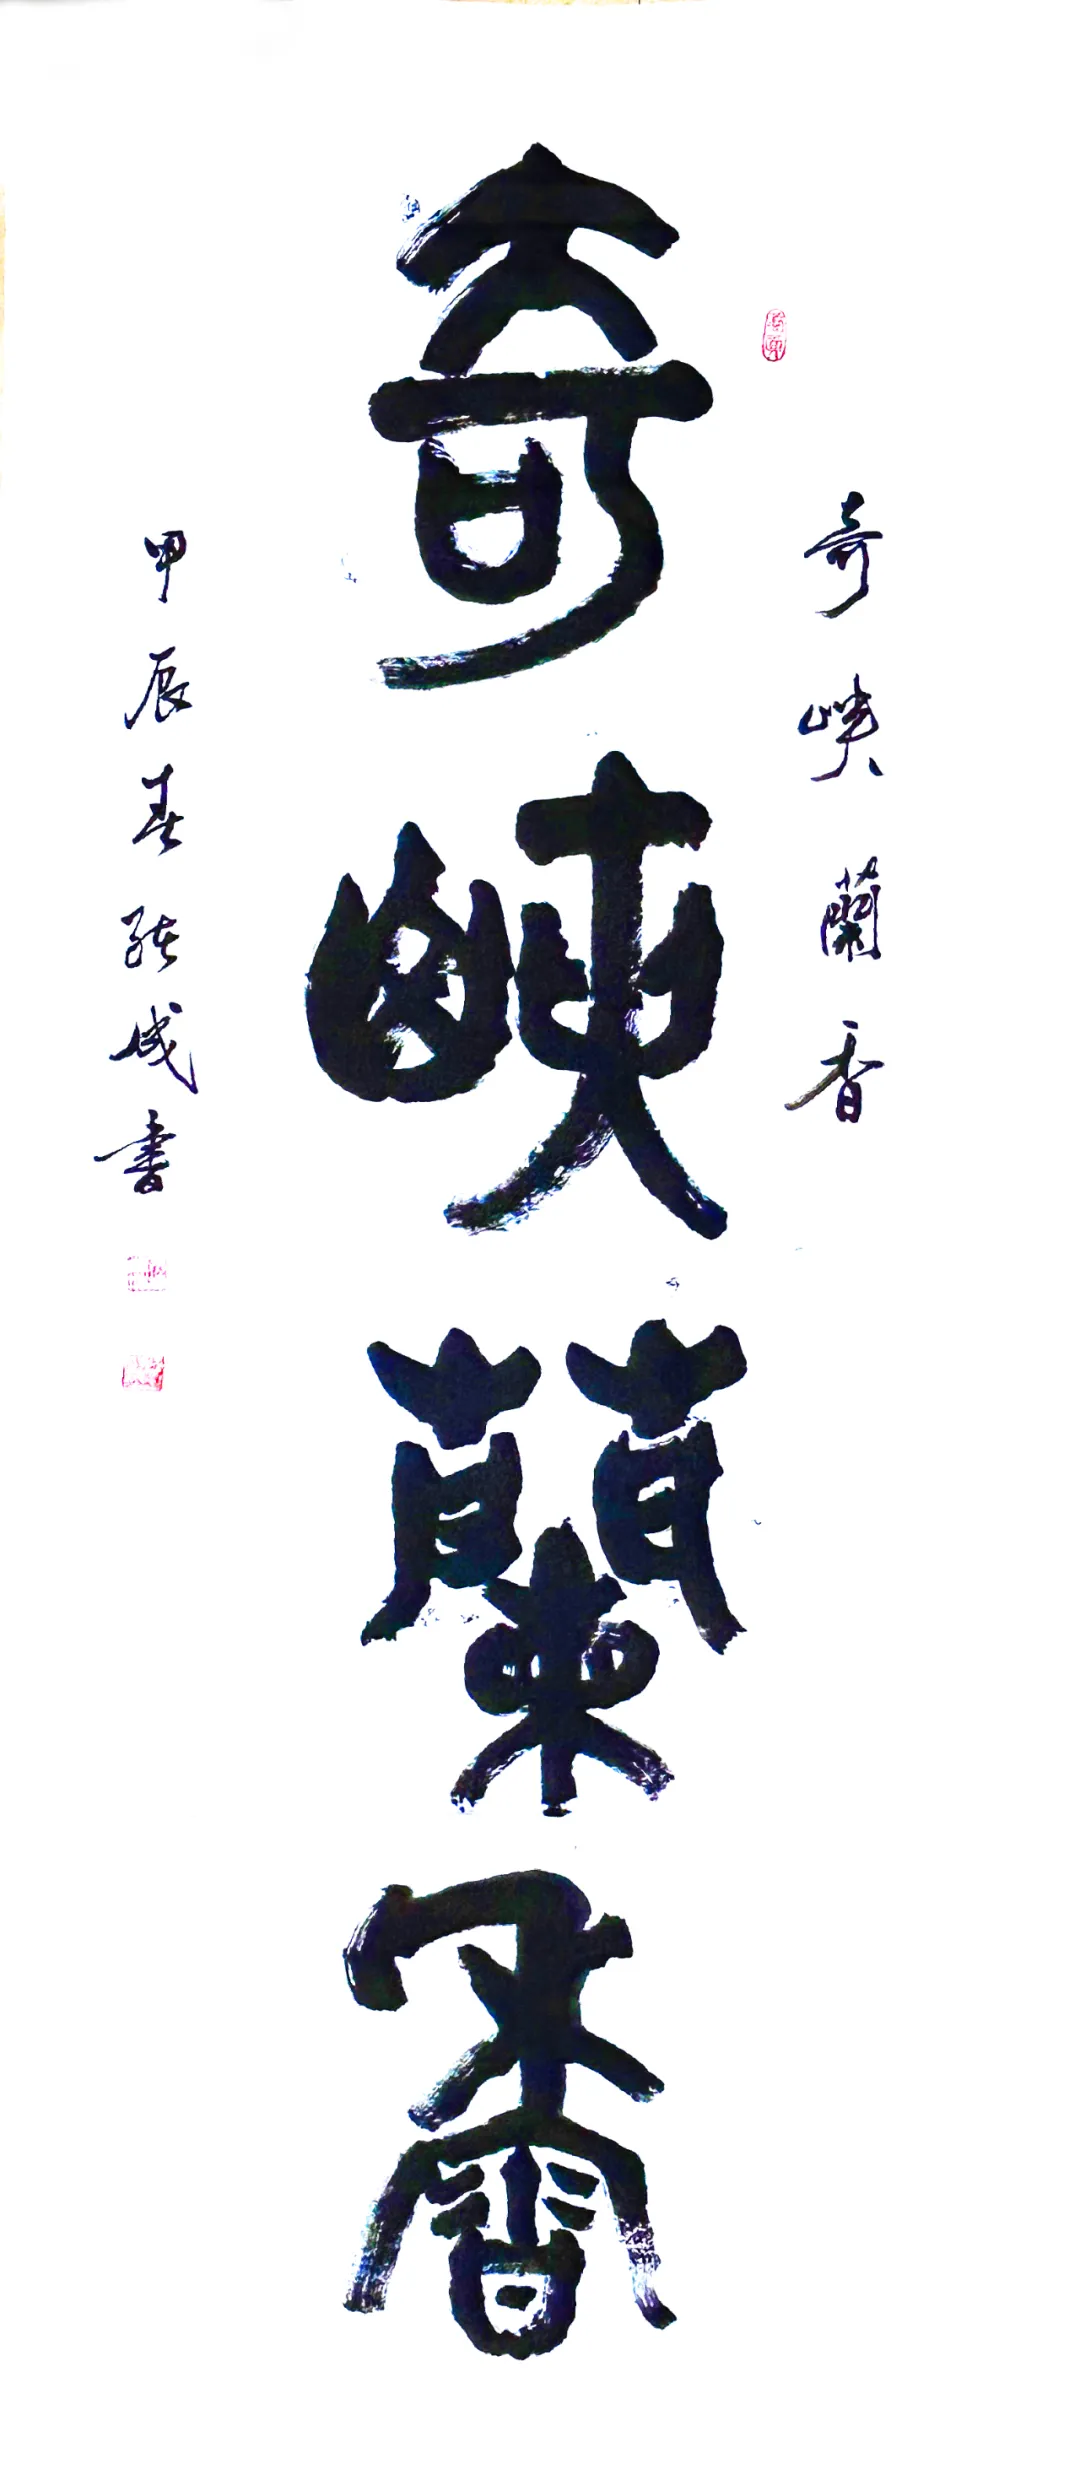 奇峽蘭香
奇峽蘭香
甲辰春張成書